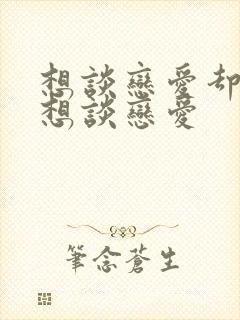 想談戀愛却
想談戀愛
筆念蒼生